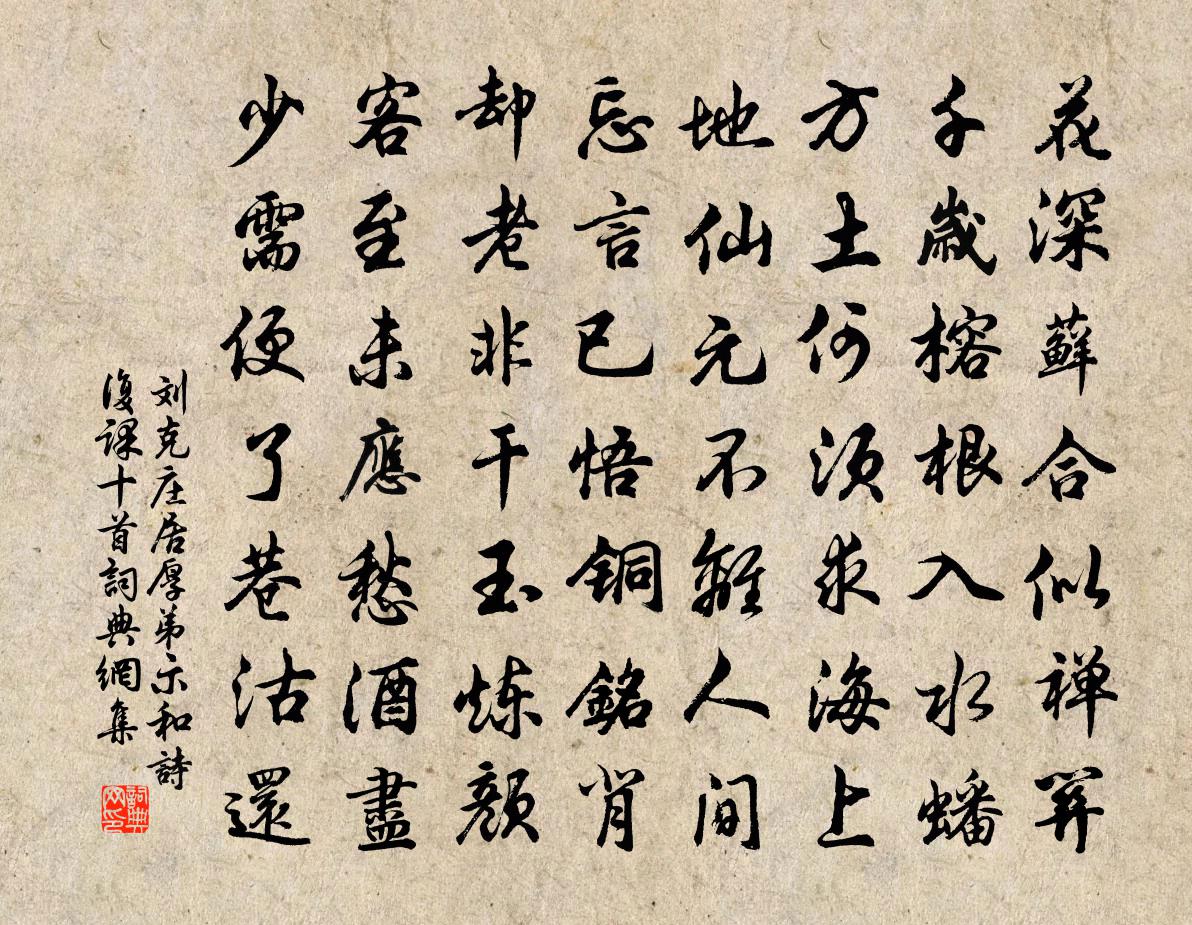 花深藓合似禅关
千岁榕根入水蟠
方士何须求海上
地仙元不离人间
忘言已悟铜铭背
却老非干玉炼颜
客至未應愁酒盡
少需便了巷沽還
刘克庄居厚弟示和詩
復课十首詞典網集
詞典网印